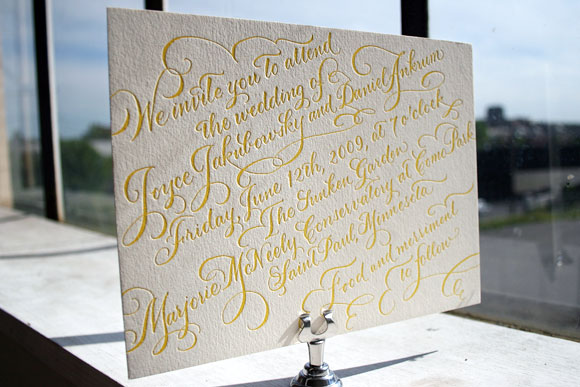 We invite you to attend
the wedding of
Joyce Jakubowsky and Daniel Ankrum
Friday, June 12th, 2009, at 7 o'clock
The Sunken Garden
Marjorie McNeely Conservatory at Como Park
Saint Paul, Minnesota
Food and merriment
to follow